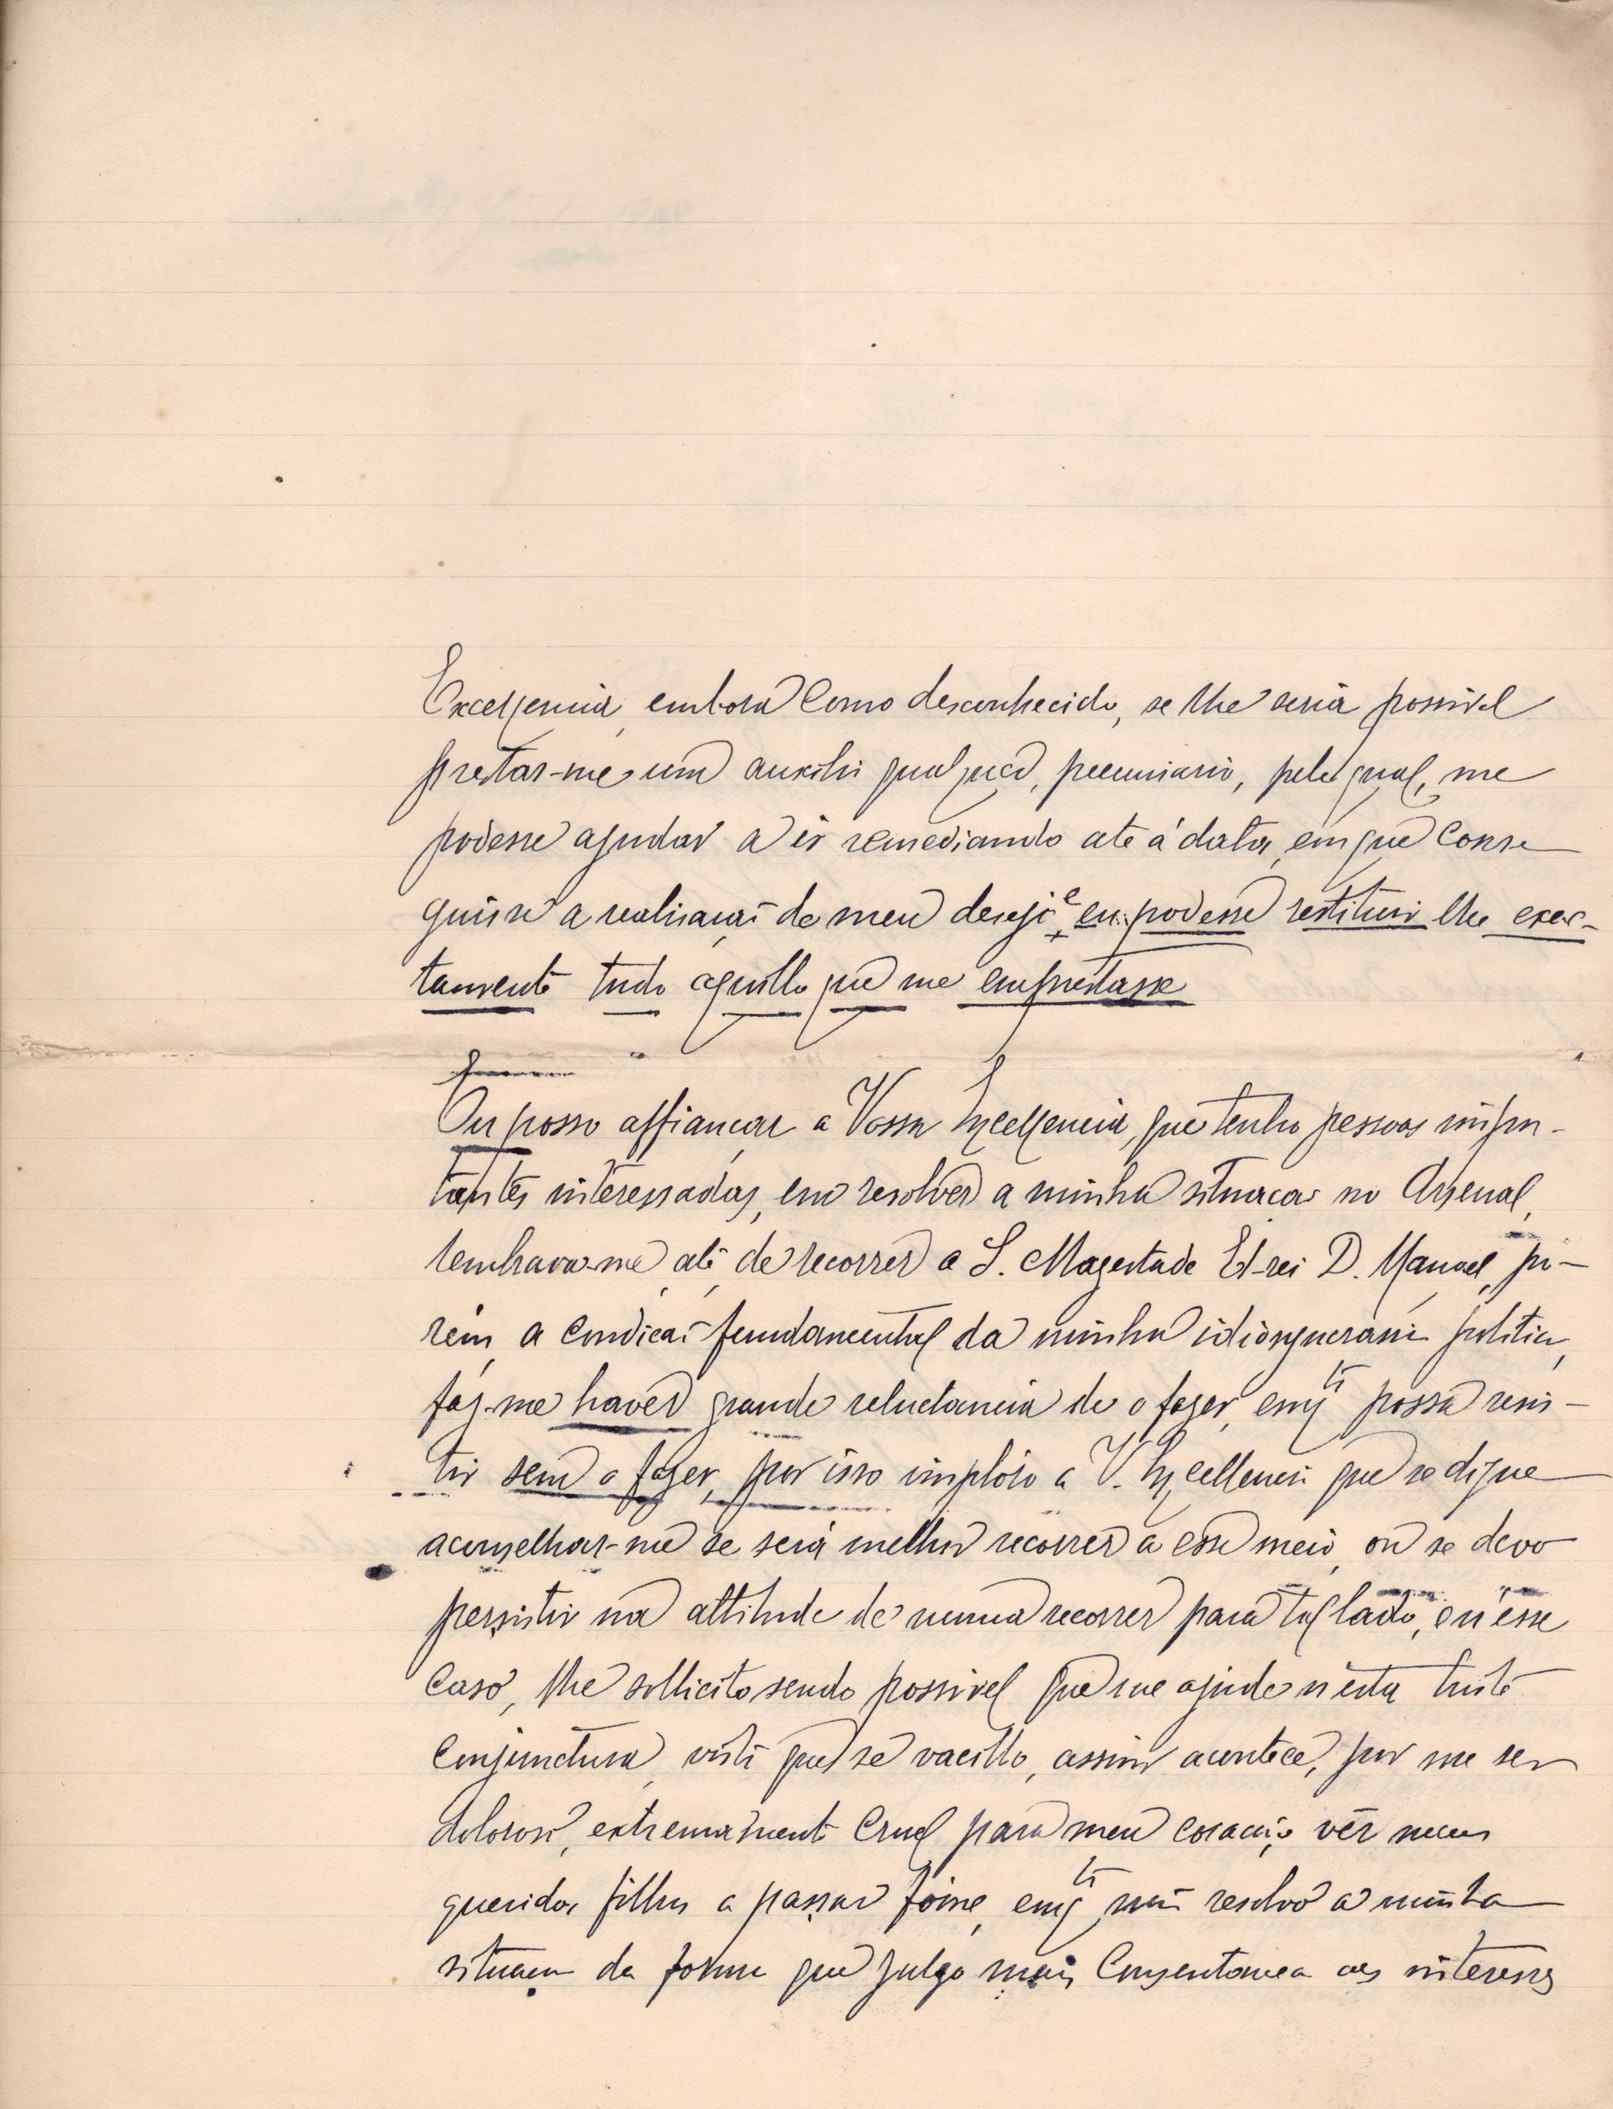 Excellencia, embora como desconhecido, se lhe seria possivel
prestar-me um auxilio qualquer, pecuniario, pelo qual, me
podesse ajudar a ir remediando até á data, em que conse
guisse a realisação do meu desejo e eu podesse restituir lhe exac-
tamente tudo aquillo que me emprestasse
Eu posso affiançar a Vossa Excellencia, que tenho pessoas impor-
tantes interessadas, em resolver a minha situação no Arsenal,
lembrava-me até de recorrer a S. Magestade El-rei D. Manuel, po-
rém, a condição fundamental da minha idiosyncrasia politica,
faz-me haver grande reluctancia de o fazer, emqto possa resis-
tir sem o fazer, por isso implóro a V. Excellencia que se digne
aconselhar-me se será melhor recorrer a esse meio, ou se devo
persistir na attitude de nunca recorrer para tal lado, e n'esse
caso, lhe sollicito sendo possivel que me ajude n'esta triste
conjunctura, visto que se vacillo, assim acontece, por me ser
doloroso, extremamente cruel para meu coração vêr meus
queridos filhos a passar fome, emqto não resolvo a minha
situação da forma que julgo mais consentanea aos interesses